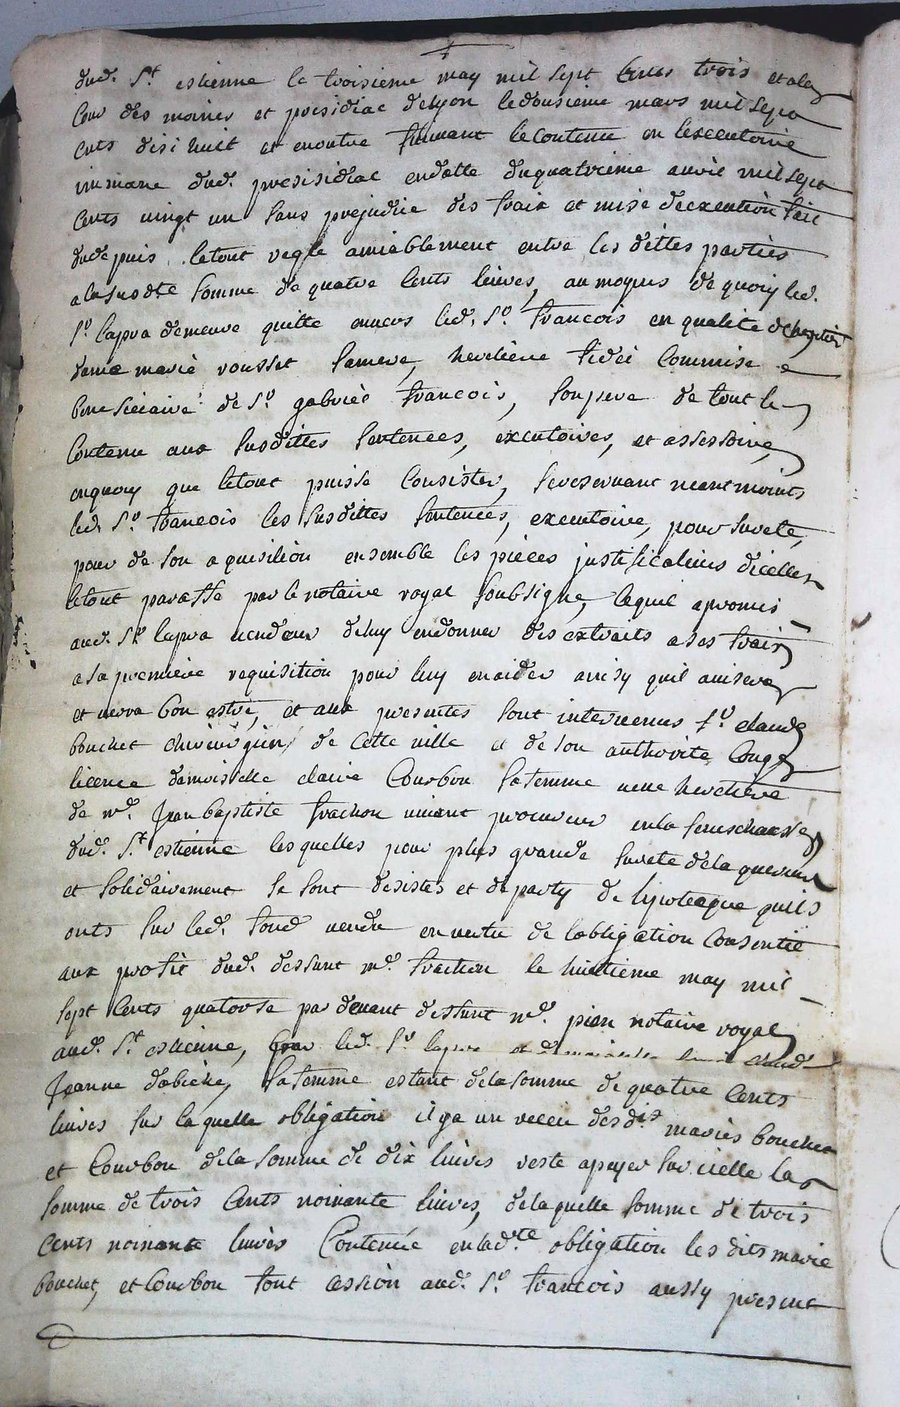 dud. St. estienne le troisieme may mil sept cents trois et a la
Cour des moiner et presidiac delyon le dousieme mars mil sept
cents disi huict et en outre suiuant le contenu en lexecutoire
emmané dud. presisidiac en datte du quatrieme auril mil sept
Cents uingt un sans prejudice des fraix et mise dexecution fait
du depuis. le tout reglé amiablement entre les dittes parties
a la susdte somme de quatre cents liures, au moyens de quoy led.
Sr. lapra demeure quitte enuers led. Sr. francois en qualité dheritier
dame marie rousset sa mere, heretiere fidei commise e
beneficiaire de Sr. gabriel francois, son pere de tout le
Contenu aux susdittes sentences, executoires, et assessoire,
en quoy que le tout puisse Consister, se reseruant neantmoints
led. Sr. francois les susdittes sentences, executoire, pour sureté,
pour de son aquisition ensemble les pieces justificatiues dicelles
le tout paraffé par le notaire royal soubsigné, lequel a promis
aud. Sr. lapra uendeur de luy en donner des extraits a ses fraix
a la premiere requisition pour luy en aider ainsy quil auisera
et uerra bon estre, et aux presentes sont interuenus Sr. claude
bouchet chirurgien de cette uille et de son authorité Congé
licence damoiselle claire Courbon sa femme ueue heretiere
de me. Jean baptiste frachon uiuant procureur en la seneschaussé
dud. St. estienne lesquelles pour plus grande sureté de laquereur
et solidairement se sont desistés et departy de lipoteque quils
onts sur led. fond uendu en uertu de lobligation Consentie
aux profit dud. deffunt me. frachon le huittieme may mil
sept cents quatorse par deuant deffunt me. pion notaire royal
aud. St. estienne, par led. Sr. lapra et demoiselle
Jeanne dabiche, sa femme estant de la somme de quatre cents
liures sur laquelle obligation il y a un receu des dis mariés bouchet
et Courbon de la somme de dix liures reste a payer sur icelle la
somme de trois cents noinante liures, de laquelle somme de trois
cents noinante liures Contenüe en ladte. obligation les dits marié
bouchet, et Courbon font cession aud. Sr. francois aussy present